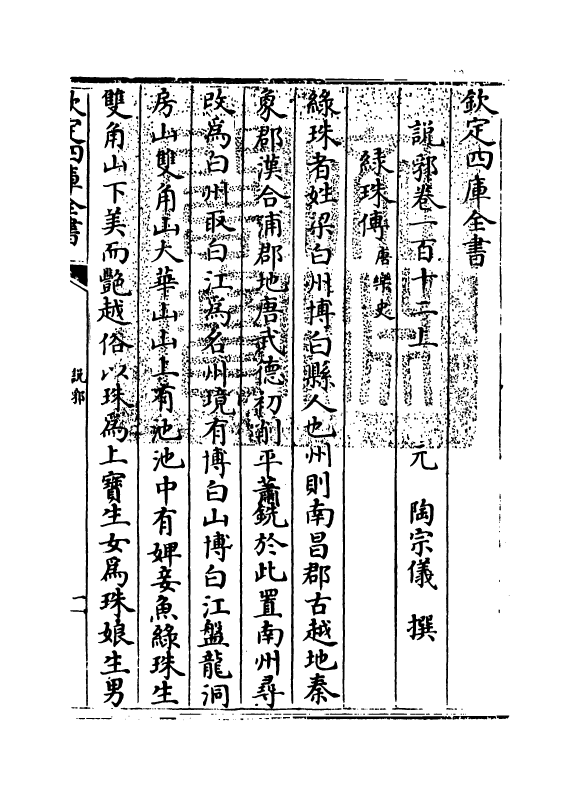 欽定四庫全書
說郛卷一百十二上　元　陶宗儀　撰
綠珠傳唐樂史
綠珠者姓梁白州博白縣人也州則南昌郡古越地秦
象郡漢合浦郡地唐武德初削平蕭銑於此置南州尋
改爲白州取白江爲名州境有博白山博白江盤龍洞
房山雙角山大華山山上有池池中有婢妾魚綠珠生
雙角山下美而豔越俗以珠爲上寶生女爲珠娘生男
欽定四庫全書
說郛
一